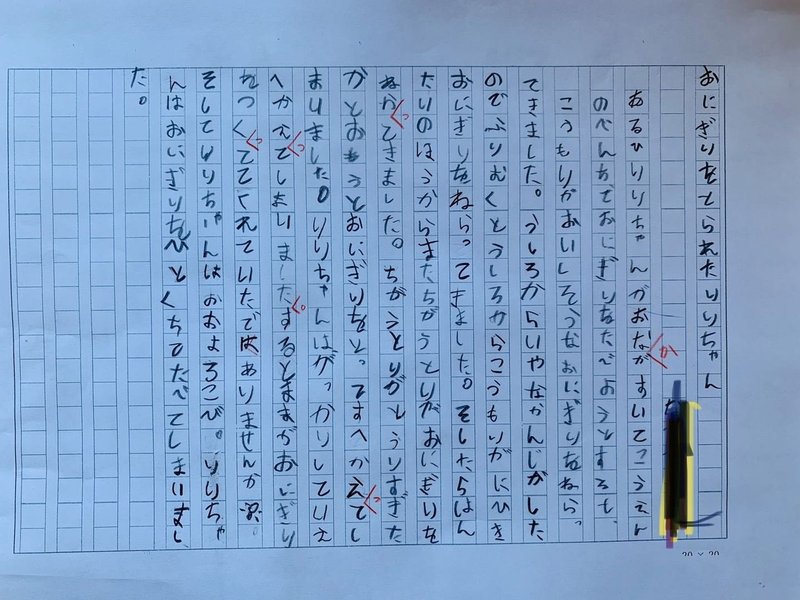 おにぎりをとられたりりちゃん
あるひりりちゃんがおながすいてこうえん
か
のべんちでおにぎりをたべようとすると、
こうもりがおいしそうなおにぎりをねらっ
てきました。うしろからいやなかんじがした
のでふりむくとうしろからこうもりがにひき
おにぎりをねらってきました。そしたらはん
たいのほうからまたちがうとりがおにぎりを
ねらてきました。ちがうとりがとうりすぎた
っ
かとおもうとおにぎりをとってすへかえてし
っ
まいました。りりちゃんはがっかりしていえ
へかえてしまいましたするとままがおにぎり
っ
。
をつくててくれていたではありませんか。
っ
そしてりりちゃんはおおよろこび。りりちゃ
んはおにぎりをひとくちでたべてしまいまし
た。
20×20